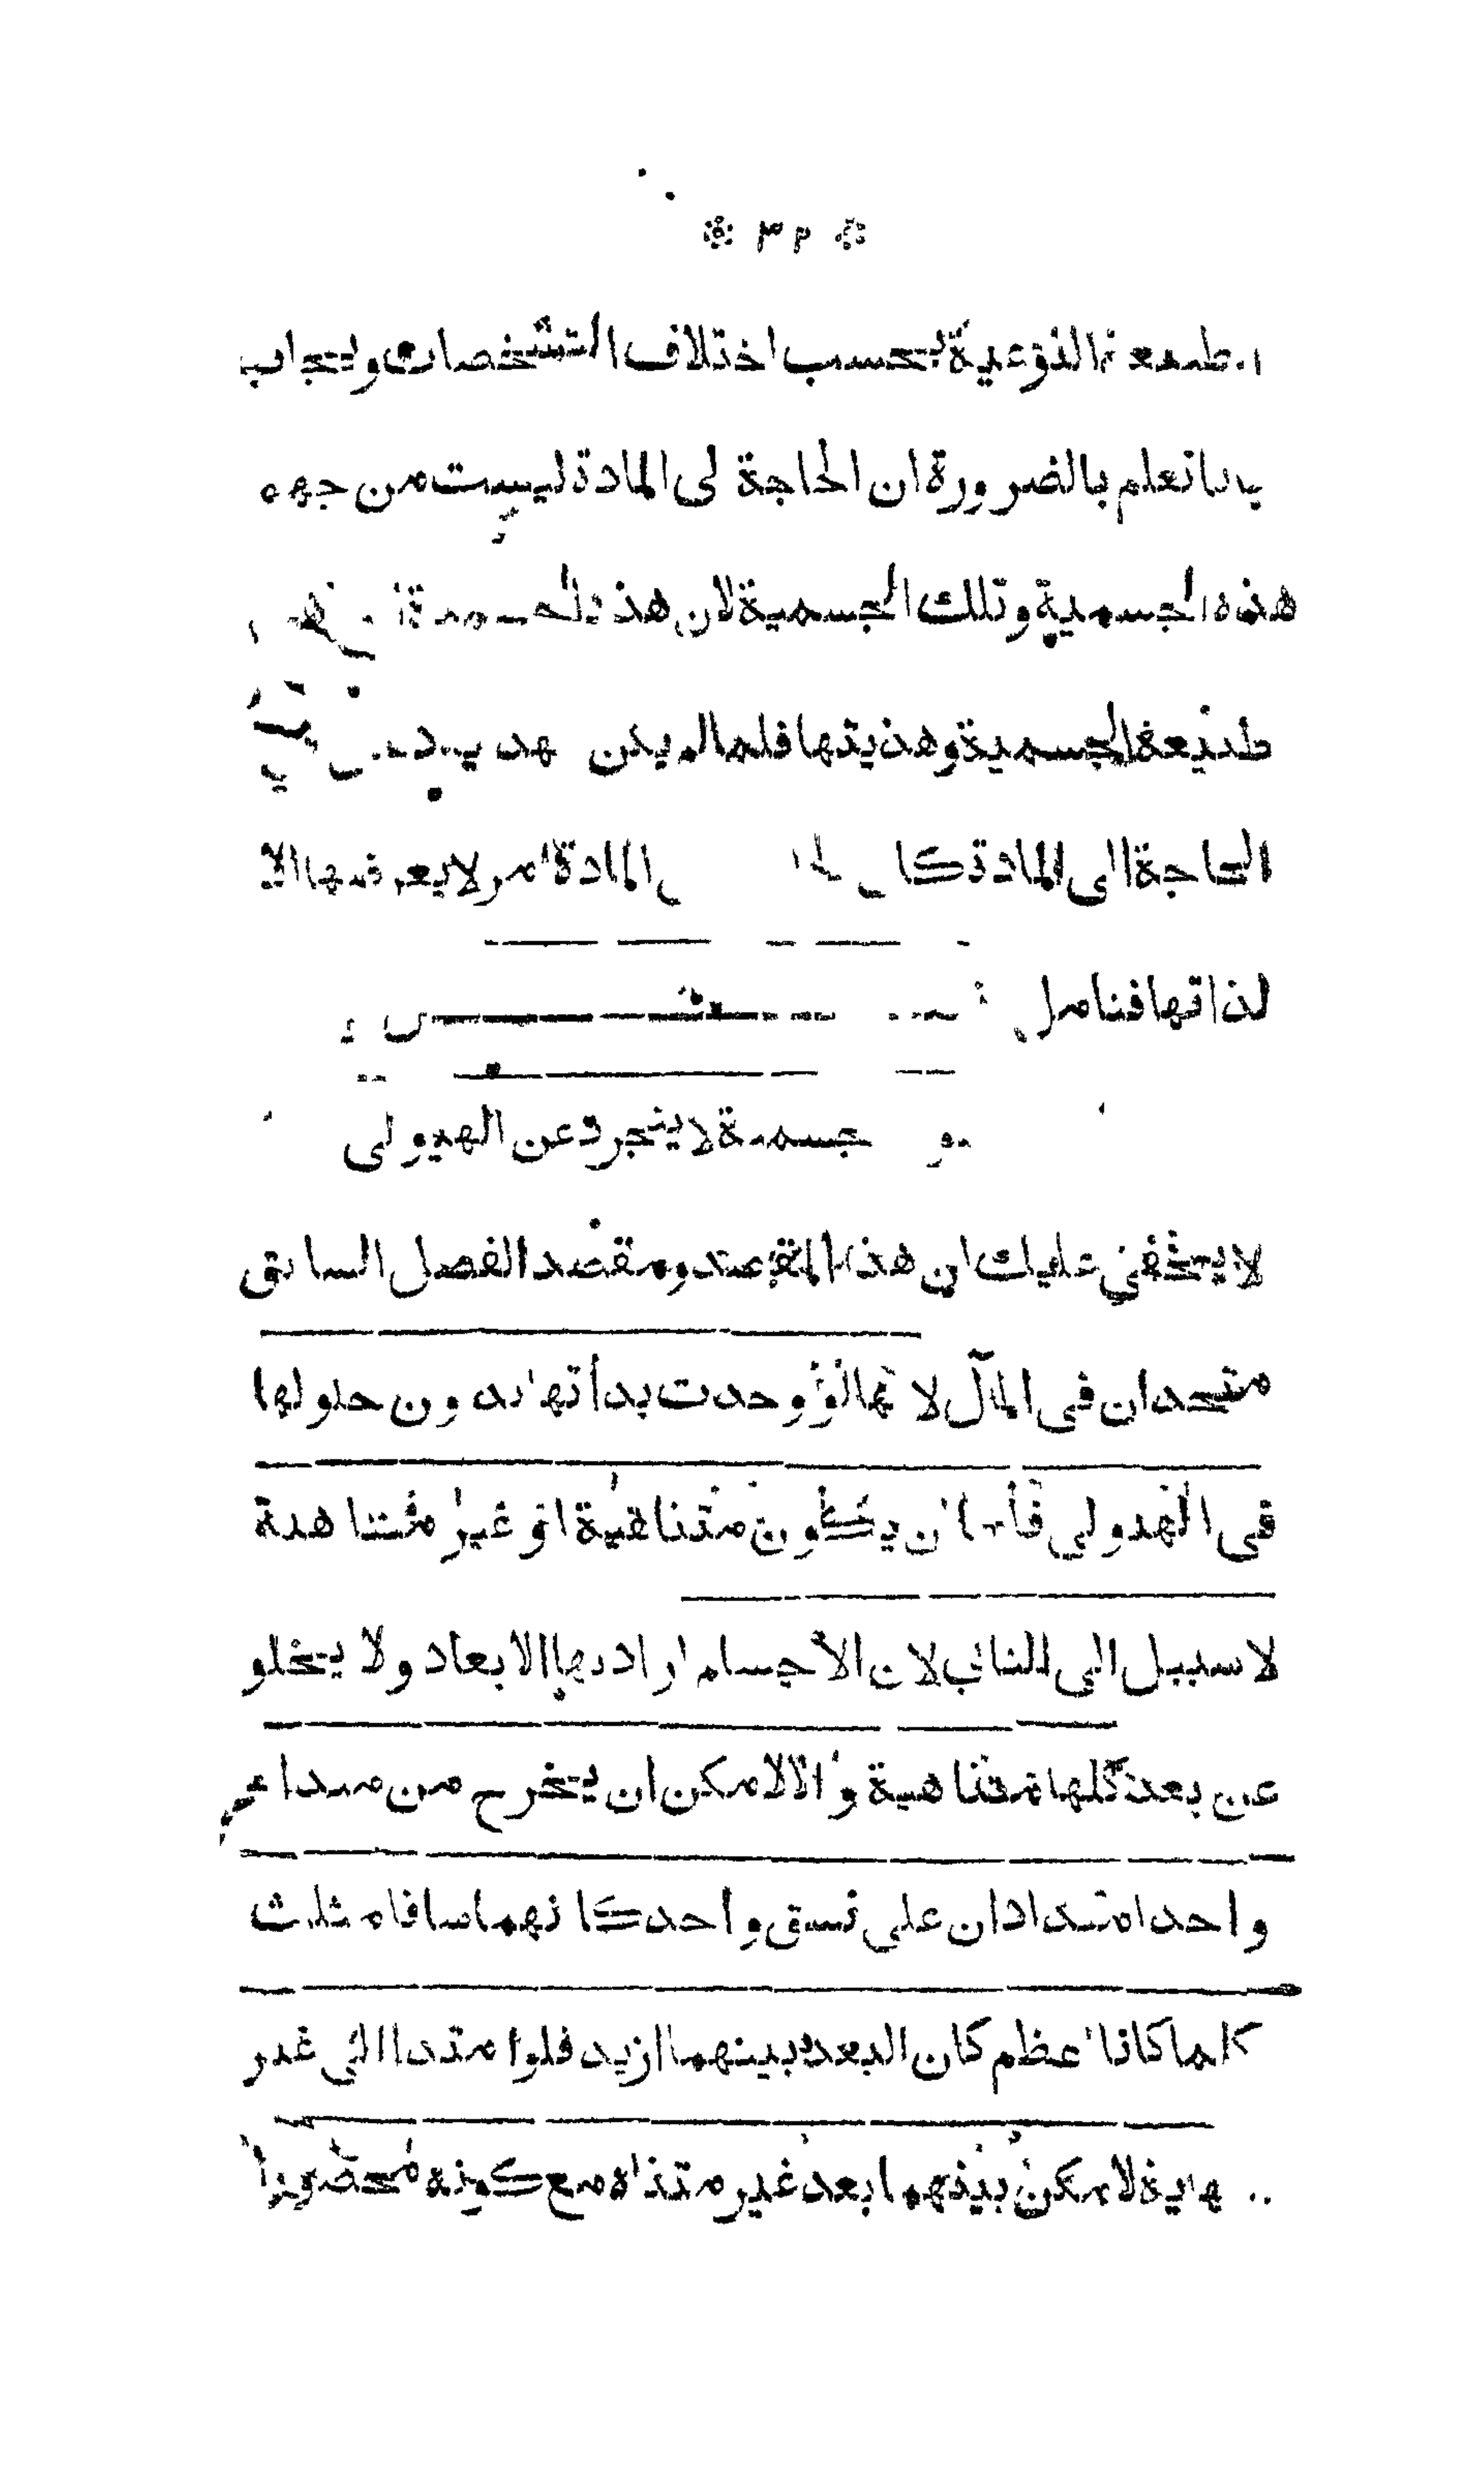 * ٣٢ *
الطبيعة النوعية بحسب اختلاف التشخصات ويجاب
بانا نعلم بالضرورة ان الحاجة الى المادة ليست من جهة
هذه الجسمية وتلك الجسمية لان هذه الجسمية
طبيعة الجسمية وهذيتها فلما لم يكن
الحاجة الى المادة المادة امر لا يعرضها الا
لذاتها فتامل
جسمية لا يتجرد عن الهيولى
لا يخفى عليك ان هذا المقصد ومقصد الفصل السابق
متحدان فى المآل لانها لو وجدت بذأتها بدون حلولها
فى الهيولى فأما ان يكون متناهية او غير متناهية
لا سبيل الى الثانى لان الأجسام اراد بها الابعاد ولا يخلو
عن بعد كلها متناهية والا لامكن ان يخرج من مبدا
واحد امتدادان على نسق واحد كانهما ساقا مثلث
كلما كانا اعظم كان البعد بينهما ازيد فلو امتدا الى غير
نهاية لامكن بينهما بعد غير متناه مع كونه محصورا